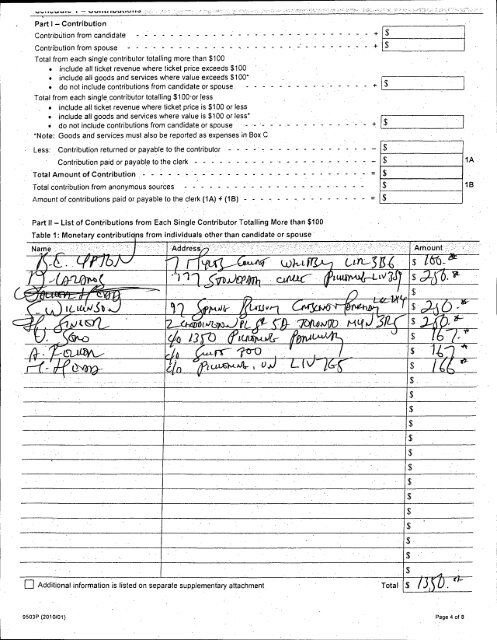 Part I – Contribution
Contribution from candidate + $
Contribution from spouse + $
Total from each single contributor totalling more than $100
• include all ticket revenue where ticket price exceeds $100
• include all goods and services where value exceeds $100*
• do not include contributions from candidate or spouse + $
Total from each single contributor totalling $100 or less
• include all ticket revenue where ticket price is $100 or less
• include all goods and services where value is $100 or less*
• do not include contributions from candidate or spouse + $
*Note: Goods and services must also be reported as expenses in Box C
Less: Contribution returned or payable to the contributor – $
Contribution paid or payable to the clerk – $ 1A
Total Amount of Contribution = $
Total contribution from anonymous sources $ 1B
Amount of contributions paid or payable to the clerk (1A) + (1B) = $
Part II – List of Contributions from Each Single Contributor Totalling More than $100
Table 1: Monetary contributions from individuals other than candidate or spouse
Name Address Amount
UPTON 7 Court WHITBY L1R 3B6 $ 100.
777 STONEPATH CIRCLE PICKERING L1V 3 $ 250.
$
S. WILKINSON 97 SPRING BLOSSOM CRESCENT $ 250.
SENIOR 2 PL TORONTO M4N 3R5 $ 250.
c/o 1350 PICKERING PARKWAY $ 167.
A. c/o SUITE 700 $ 167.
c/o PICKERING, ON L1V 7G5 $ 166
$
$
$
$
$
$
$
$
$
$
$
$
$
Additional information is listed on separate supplementary attachment Total $ 1350.
9503P (2010/01) Page 4 of 8